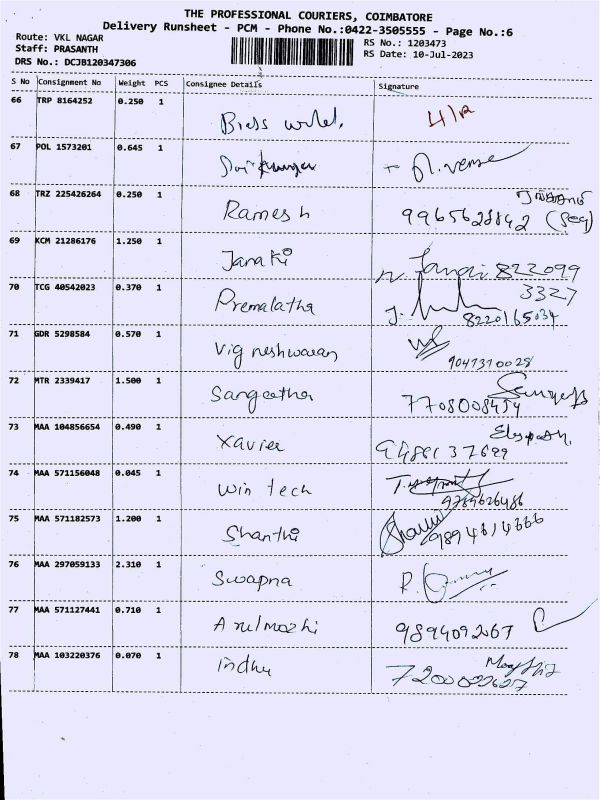 THE PROFESSIONAL COURIERS, COIMBATORE
Delivery Runsheet - PCM - Phone No.:0422-3505555 - Page No.:6
Route: VKL NAGAR
Staff: PRASANTH
DRS No.: DCJB120347306
RS No.: 1203473
RS Date: 10-Jul-2023
S No Consignment No Weight PCS Consignee Details Signature
66 TRP 8164252 0.250 1
67 POL 1573201 0.645 1
68 TRZ 225426264 0.250 1 Ramesh 9965628842 (Seq)
69 KCM 21286176 1.250 1 Janaki 822099
3327
70 TCG 40542023 0.370 1 Premalatha J. 8220165034
71 GDR 5298584 0.570 1 Vigneshwaran 9047370028
72 MTR 2339417 1.500 1 Sangeetha 7708008454
73 MAA 104856654 0.490 1 Xavier
74 MAA 571156048 0.045 1 Win tech 9789626486
75 MAA 571182573 1.200 1 Shanthi 9894614666
76 MAA 297059133 2.310 1 Swapna
77 MAA 571127441 0.710 1 Arulmozhi 9894092067
78 MAA 103220376 0.070 1 indhu 7200022627